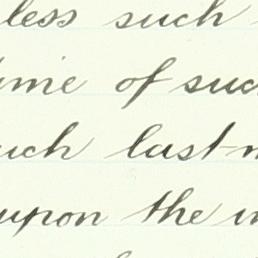 less such
time of such
such last-
upon the